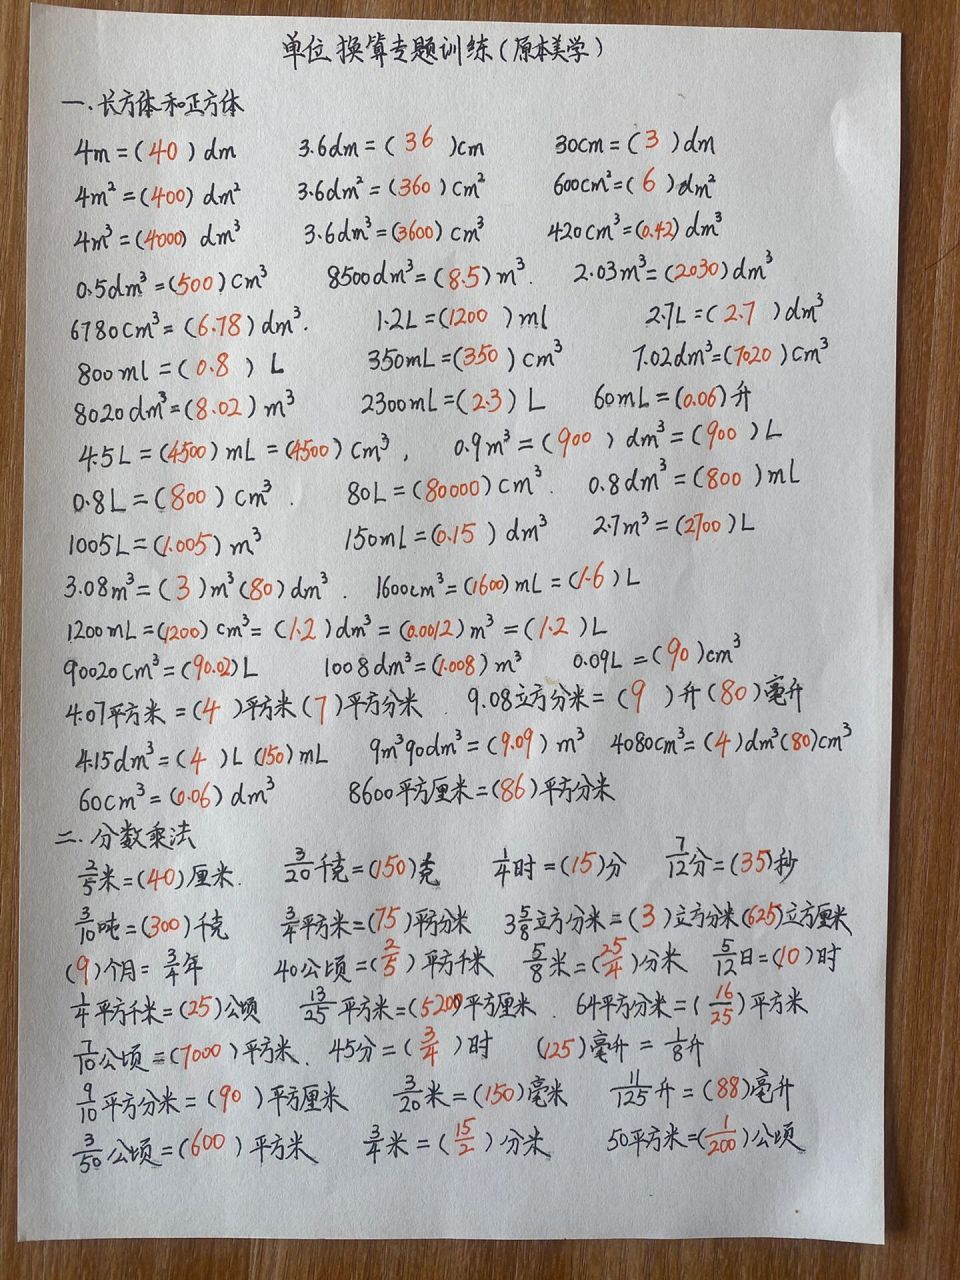 单位换算专题训练(原本美学)
一.长方体和正方体
4m=(40)dm 3.6dm=(36)cm 30cm=(3)dm
4m²=(400)dm² 3.6dm²=(360)cm² 600cm²=(6)dm²
4m³=(4000)dm³ 3.6dm³=(3600)cm³ 420cm³=(0.42)dm³
0.5dm³=(500)cm³ 8500dm³=(8.5)m³. 2.03m³=(2030)dm³
6780cm³=(6.78)dm³. 1.2L=(1200)ml 2.7L=(2.7)dm³
800ml=(0.8)L 350mL=(350)cm³ 7.02dm³=(7020)cm³
8020dm³=(8.02)m³ 2300mL=(2.3)L 60mL=(0.06)升
4.5L=(4500)mL=(4500)cm³, 0.9m³=(900)dm³=(900)L
0.8L=(800)cm³. 80L=(80000)cm³. 0.8dm³=(800)ml
1005L=(1.005)m³ 150ml=(0.15)dm³ 2.7m³=(2700)L
3.08m³=(3)m³(80)dm³. 1600cm³=(1600)mL=(1.6)L
1200mL=(1200)cm³=(1.2)dm³=(0.0012)m³=(1.2)L
90020cm³=(90.02)L 1008dm³=(1.008)m³ 0.09L=(90)cm³
4.07平方米=(4)平方米(7)平方分米. 9.08立方分米=(9)升(80)毫升
4.15dm³=(4)L(150)mL 9m³90dm³=(9.09)m³ 4080cm³=(4)dm³(80)cm³
60cm³=(0.06)dm³ 8600平方厘米=(86)平方分米
二.分数乘法
2/5米=(40)厘米. 3/20千克=(150)克 1/4时=(15)分 7/12分=(35)秒
3/10吨=(300)千克 3/4平方米=(75)平方分米 3 5/8立方分米=(3)立方分米(625)立方厘米
(9)个月=3/4年 40公顷=(2/5)平方千米 5/8米=(25/4)分米 5/12日=(10)时
1/4平方千米=(25)公顷 13/25平方米=(5200)平方厘米. 64平方分米=(16/25)平方米
7/10公顷=(7000)平方米. 45分=(3/4)时 (125)毫升=1/8升
9/10平方分米=(90)平方厘米 3/20米=(150)毫米 11/125升=(88)毫升
3/50公顷=(600)平方米 3/4米=(15/2)分米 50平方米=(1/200)公顷